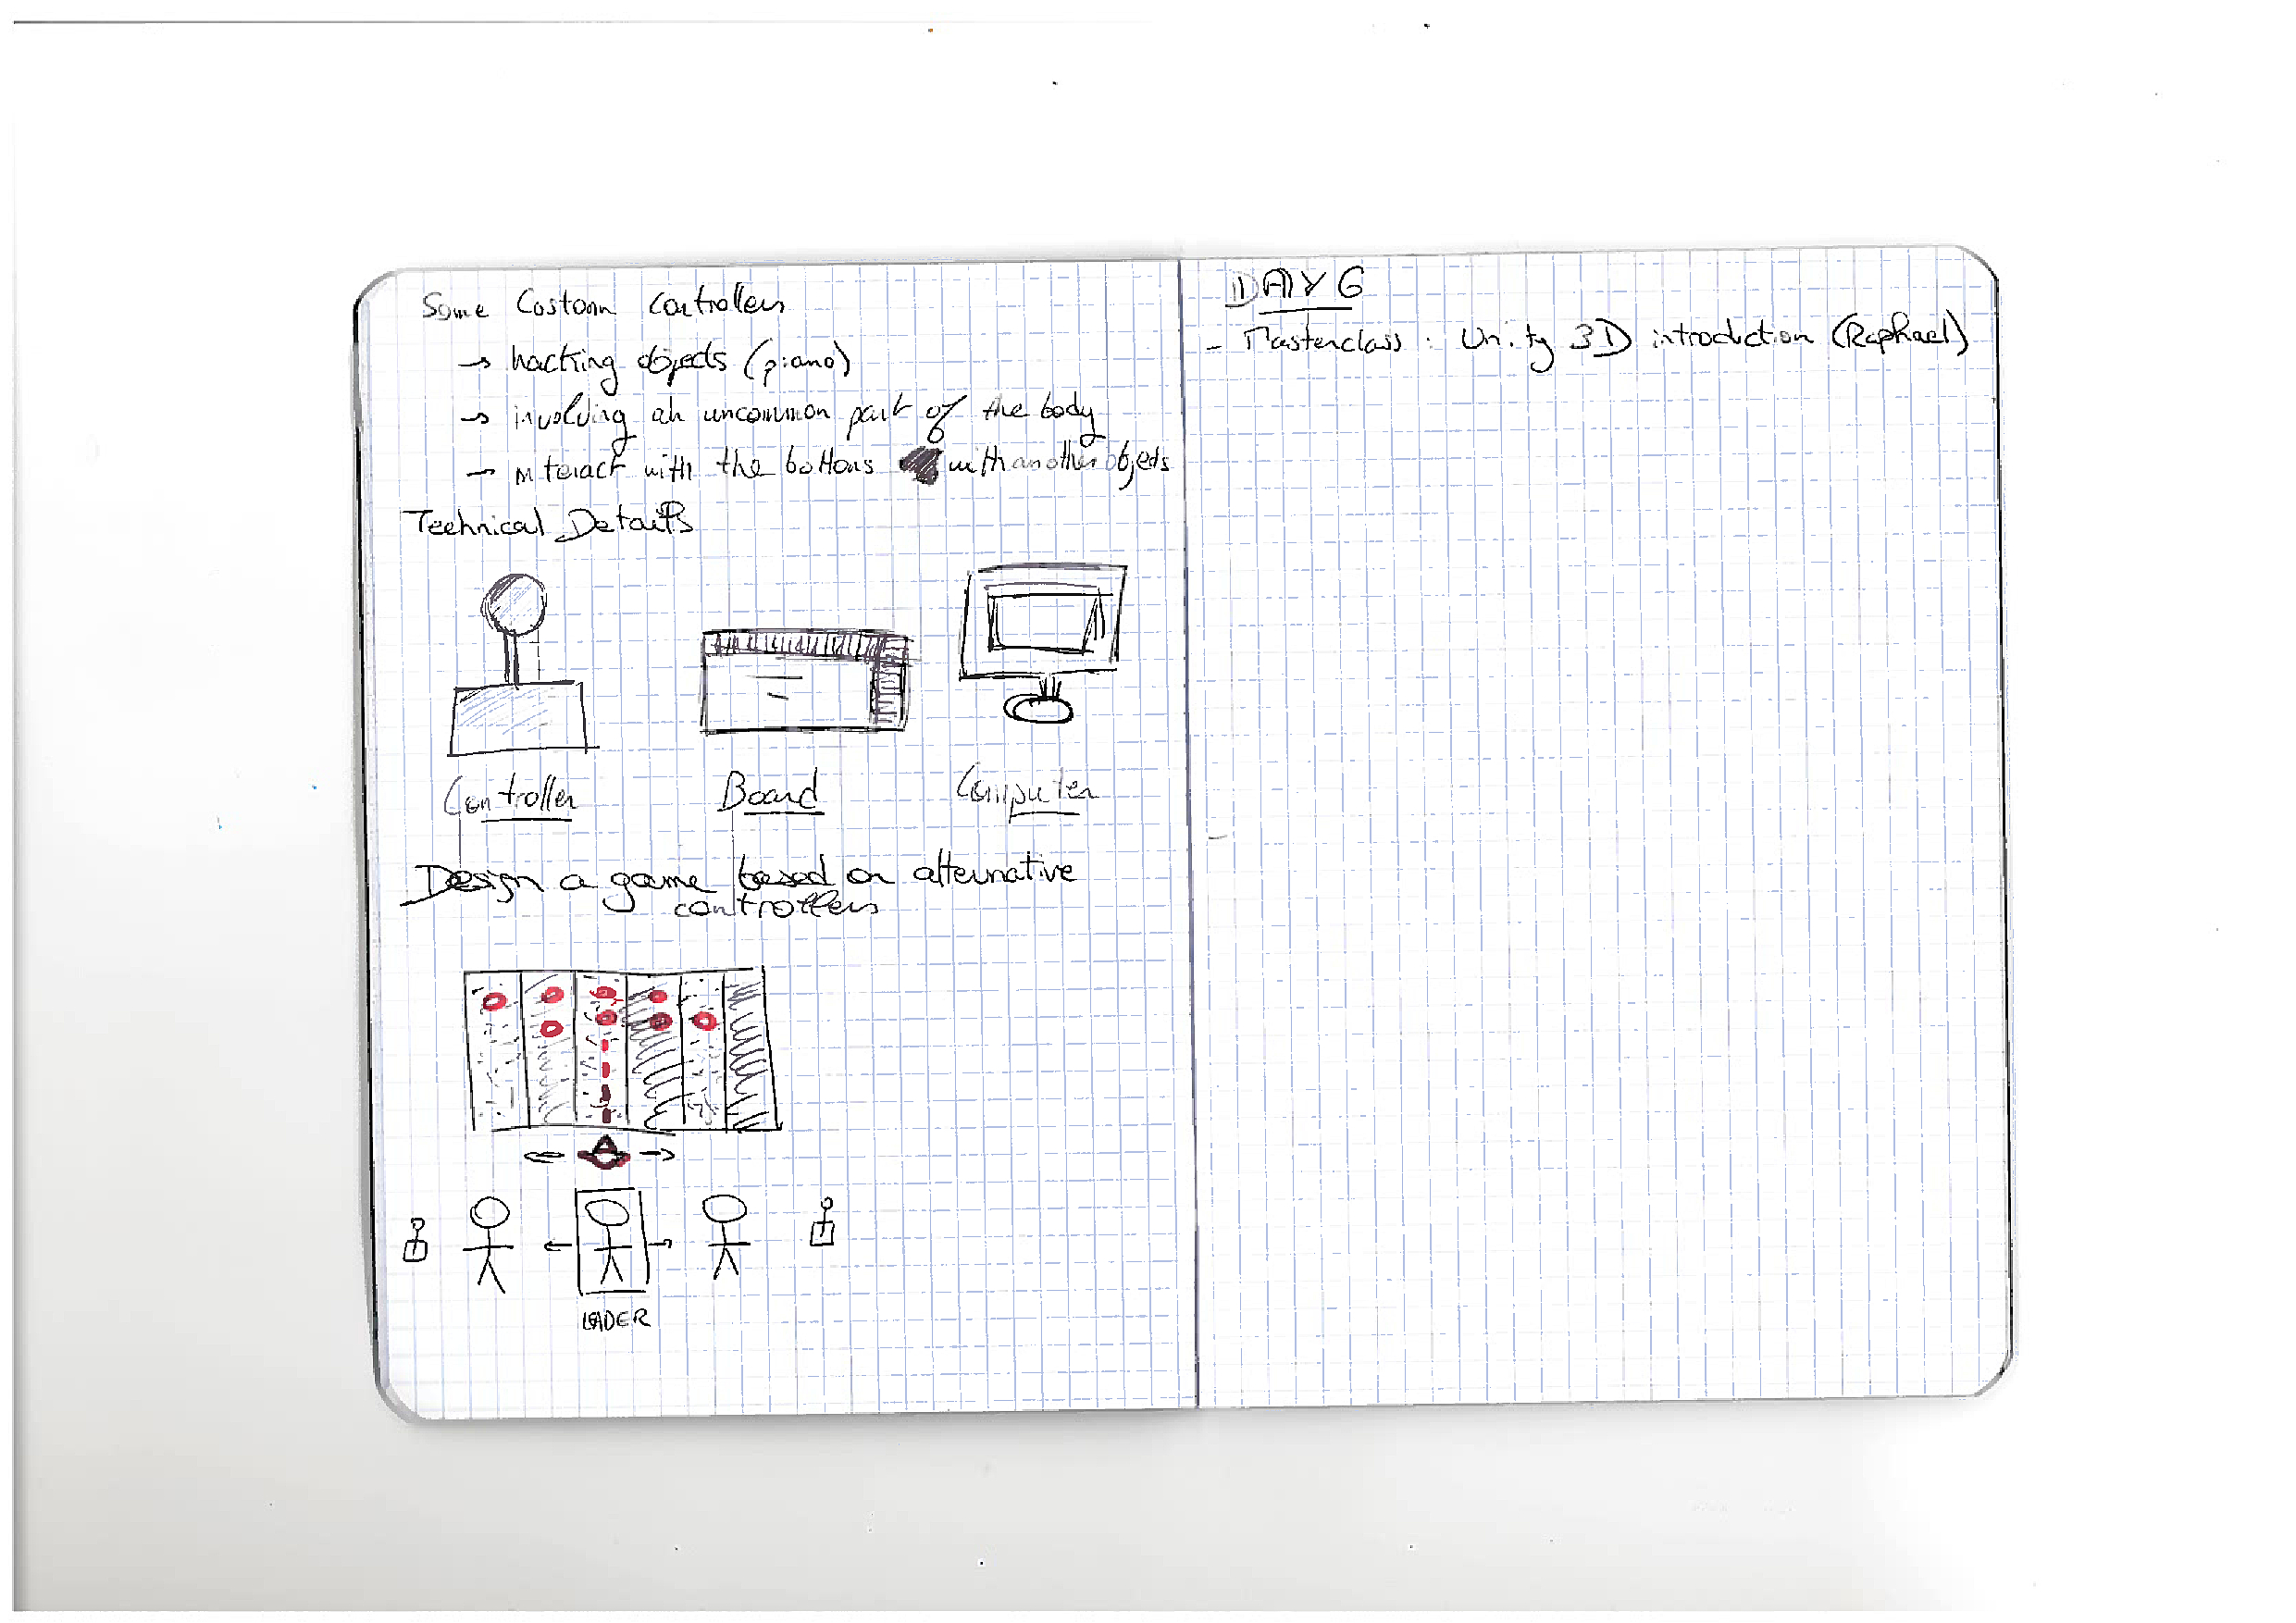 Some Costoom controllers
→ hacking objects (piano)
→ involving an uncommon part of the body
→ interact with the bottons with another objects
Technical Details
Controller
Board
Computer
Design a game based on alternative
controllers
LEADER
DAY 6
- Masterclass : Unity 3D introduction (Raphael)
-